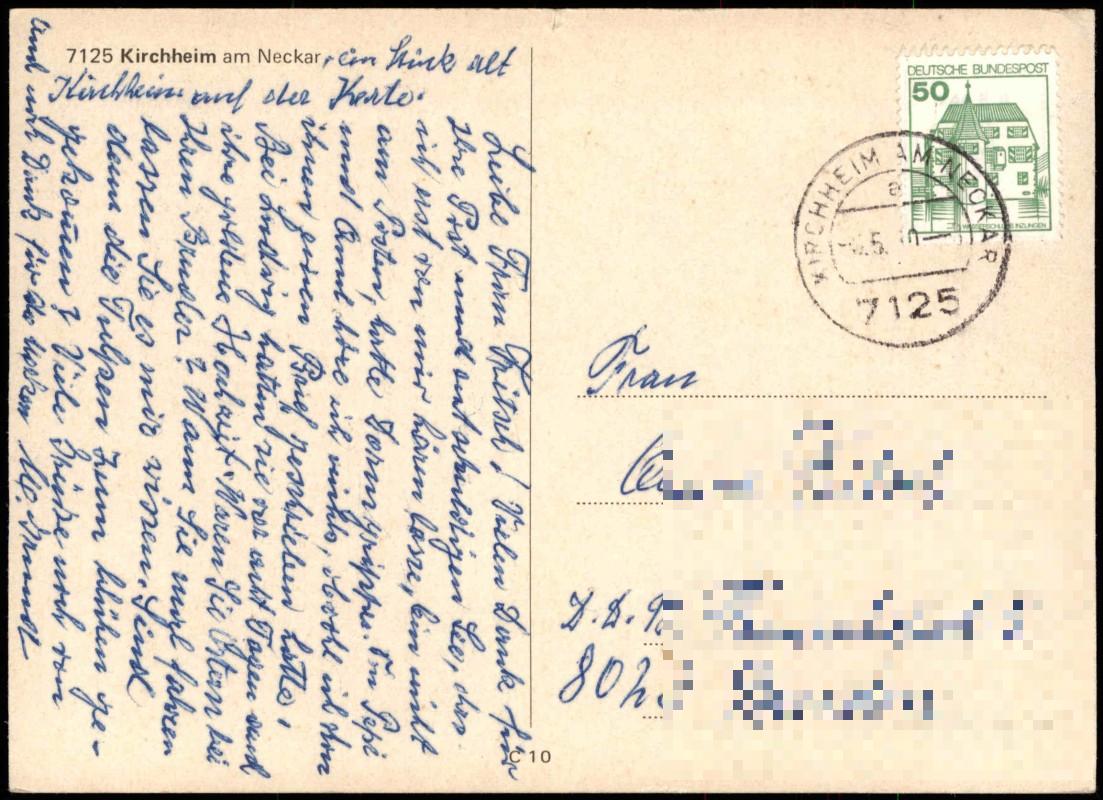 7125 Kirchheim am Neckar, ein Stück alt
Kirchheim auf der Karte.
Liebe Frau Fritsch! Vielen Dank für
Ihre Post und entschuldigen Sie, daß
ich erst von mir hören lasse, bin nicht
am Posten, hatte Darmgrippe. Von Pepi
und Anni höre ich nichts, obwohl ich von
ihnen einen Brief geschrieben hatte,
Bei Ludwig hatten sie vor acht Tagen und
ihre goldene Hochzeit. Waren Sie Ostern bei
Ihrem Bruder? Wann Sie mal fahren
lassen Sie es mir wissen. Sind
denn die Tulpen zum blühen ge-
gekommen? Viele Grüße noch von
und noch Dank für die lieben
DEUTSCHE BUNDESPOST
50
WASSERSCHLOSS INZLINGEN
KIRCHHEIM AM NECKAR
a
7125
Frau
D.D.
80
C 10